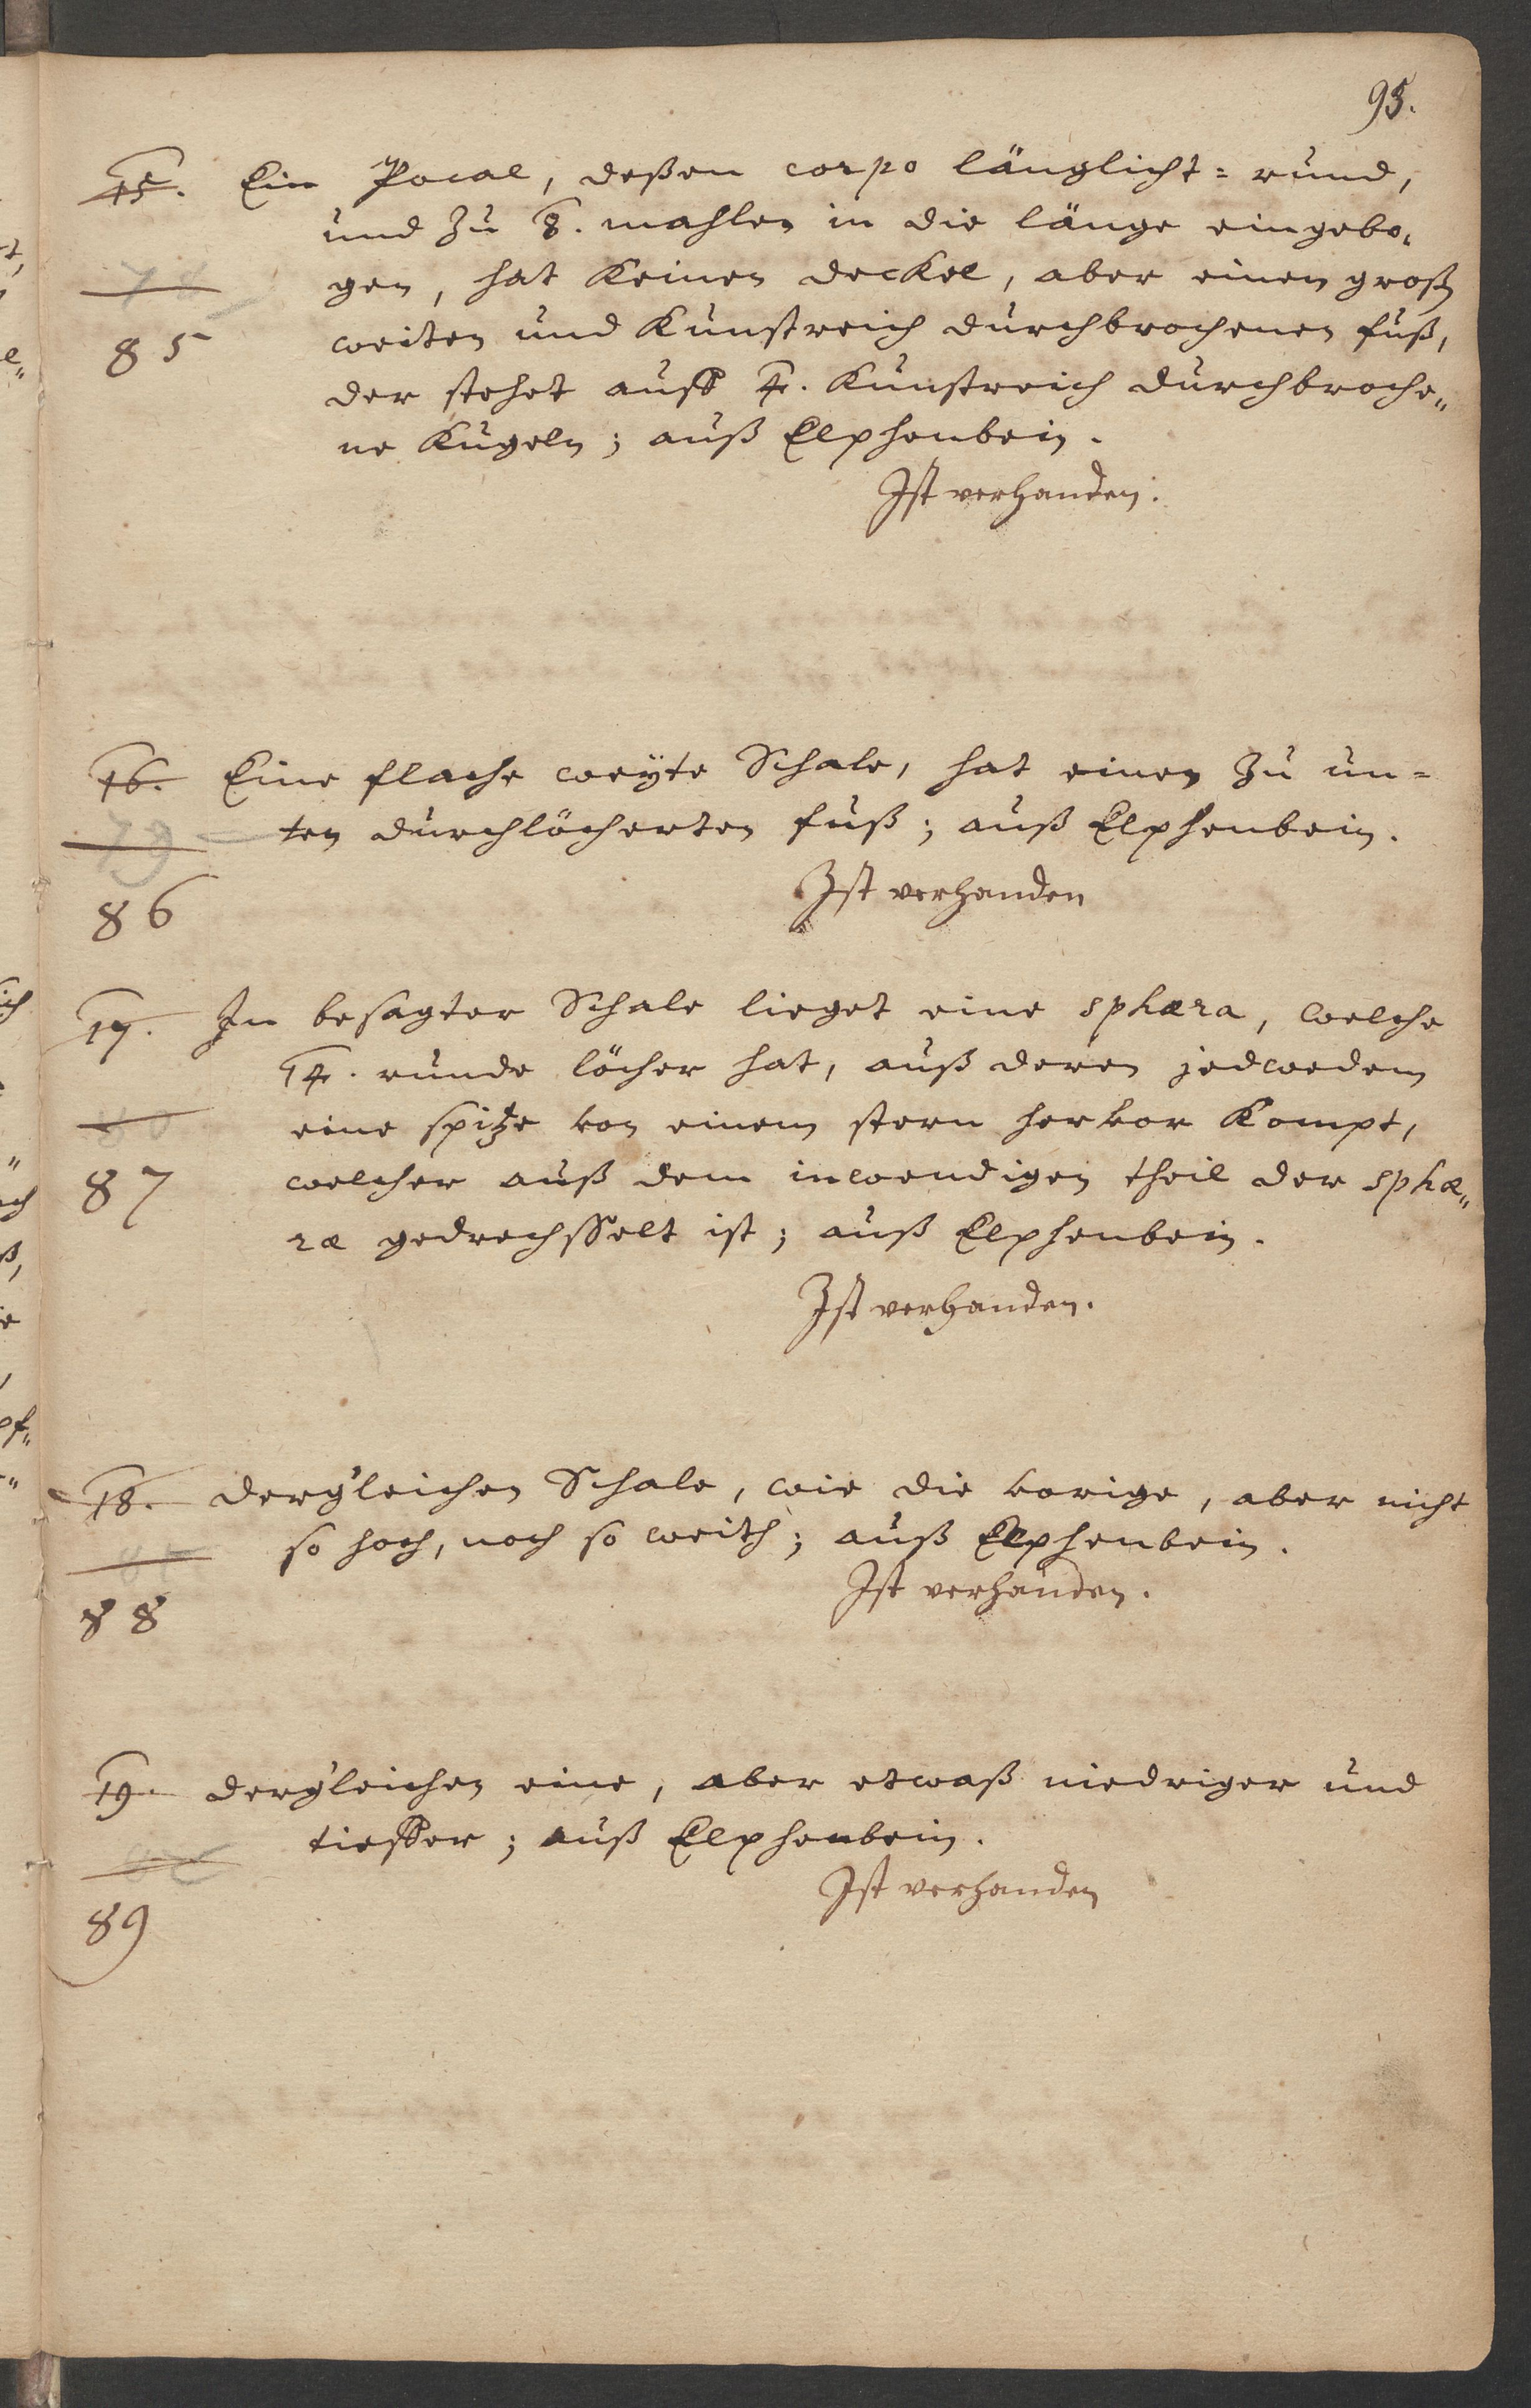 95.
15. Ein Pocal, deßen corpo länglicht= rund,
und zu 8. mahlen in die länge eingebo„
78
gen, hat keinen deckel, aber einen groß
85
weiten und kunstreich durchbrochenen fuß,
der stehet auff 4. kunstreich durchbroche„
ne Kugeln; auß Elphenbein.
Ist verhanden.
16. Eine flache weÿte Schale, hat einen zu un=
79
ten durchlöcherten fuß; auß Elphenbein.
Ist verhanden
86
17. In besagter Schale lieget eine sphæra, welche
14. runde löcher hat, auß deren jedwedem
80
eine spitze von einem stern hervor kompt,
87
welcher auß dem inwendigen theil der sphæ„
ræ gedrechsselt ist; auß Elphenbein.
Ist verhanden.
18. dergleichen Schale, wie die vorige, aber nicht
so hoch, noch so weith; auß Elphenbein.
Ist verhanden.
88
19. dergleichen eine, aber etwaß niedriger und
tieffer; auß Elphenbein.
Ist verhanden
89